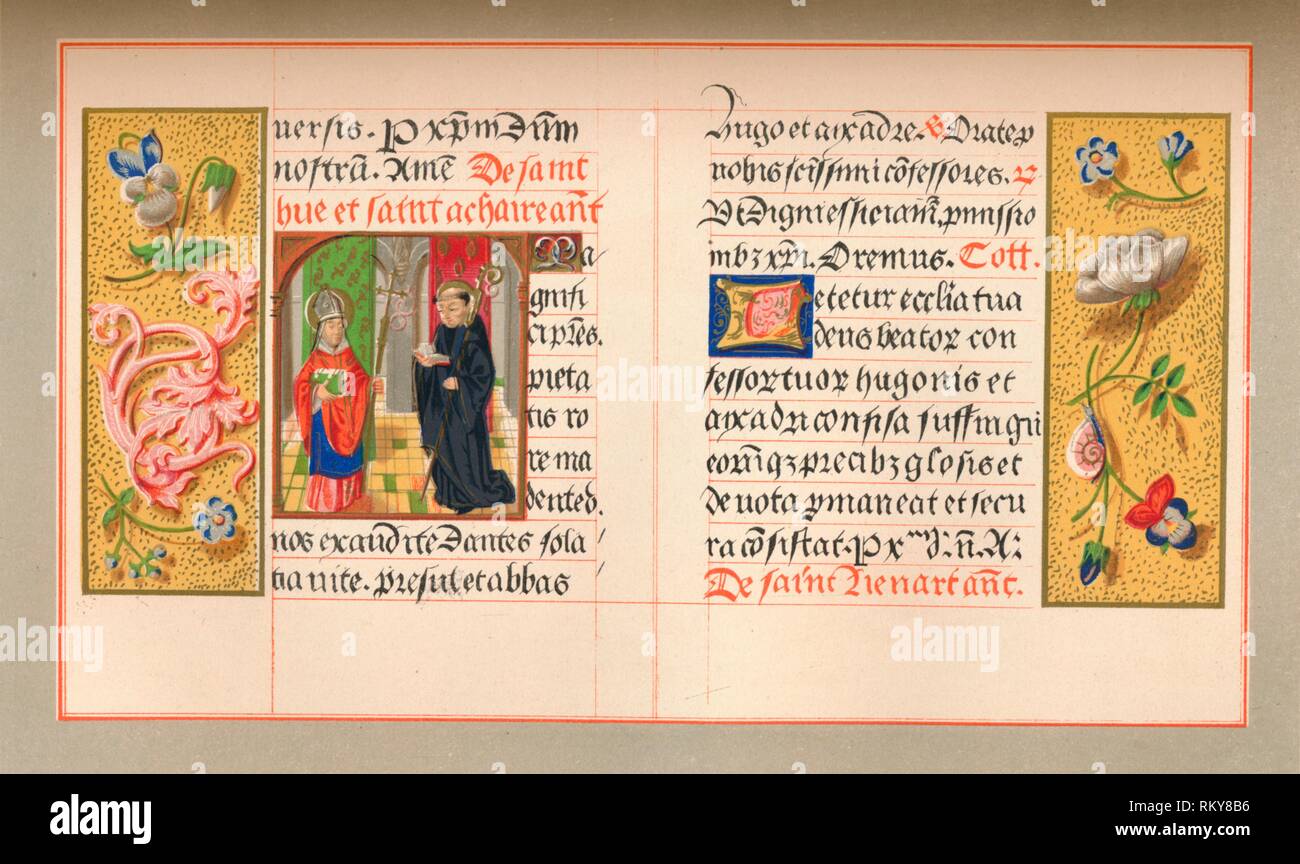 uersis. P xp̄m dūm
nostrū. Amē De saint
hue et saint achaire an̄t
Ma
gnifi
ci p̄res.
pieta
tis ro
re ma
dentes.
nos exaudite Dantes sola
tia uite. presul et abbas
hugo et ayxadre. V̷ Orate p̱
nobis scīssimi cōfessores. R̷
Vt digni efficiam̄. p̱missio
nibꝫ xp̄i. Oremus. Coll.
Letetur eccl̄ia tua
deus beatoꝝ con
fessoꝝ tuoꝝ hugonis et
ayxadri confisa suffragii
eorūqꝫ precibꝫ gl̄osis et
deuota p̱maneat et secu
ra cōsistat. P xᵐ d. n̄. A
De saint lienart an̄t.
alamy
alamy
Image ID: RKY8B6
www.alamy.com